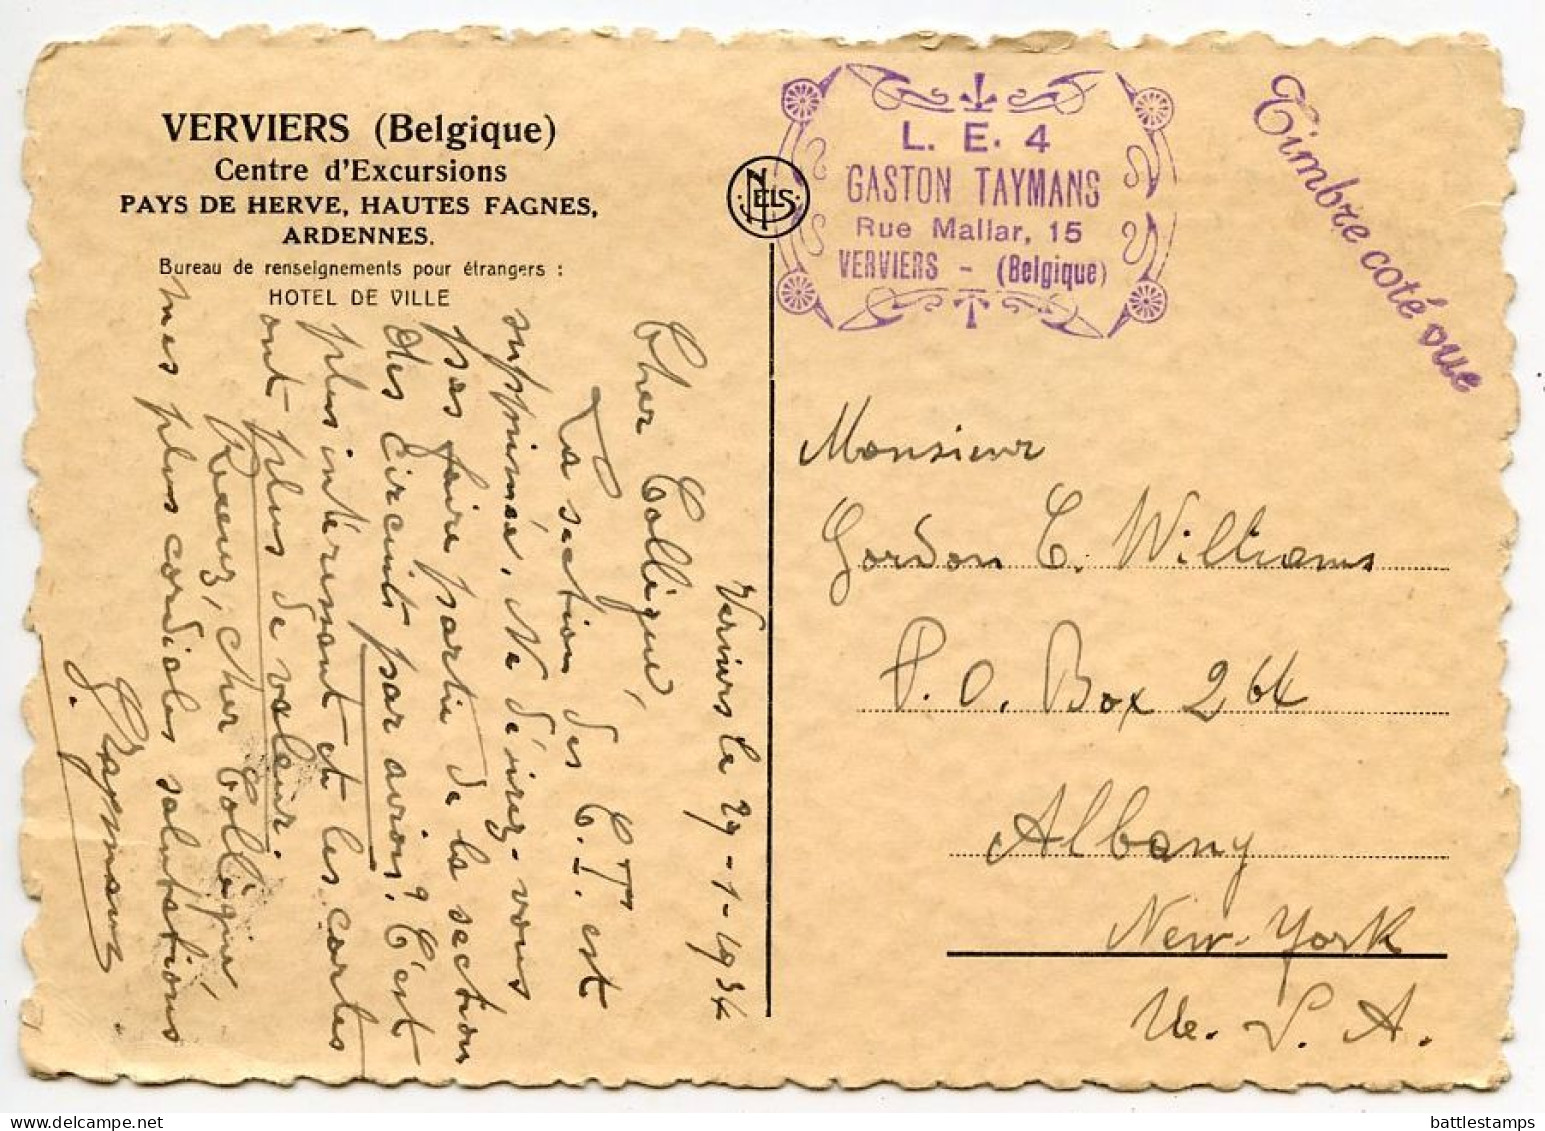 VERVIERS (Belgique)
Centre d'Excursions
PAYS DE HERVE, HAUTES FAGNES,
ARDENNES.
Bureau de renseignements pour étrangers :
HOTEL DE VILLE
NELS
L. E. 4
GASTON TAYMANS
Rue Mallar, 15
VERVIERS - (Belgique)
Timbre coté vue
Verviers le 29-1-1934
Cher Collègue,
La section des C.T. est
supprimée. Ne désirez-vous
pas faire partie de la section
des circuits par avion? C'est
plus intéressant et les cartes
ont plus de valeur.
Recevez, cher Collègue
mes plus cordiales salutations
G. Taymans
Monsieur
Gordon C. Williams
P. O. Box 264
Albany
New-York
U. S. A.
delcampe.net
battlestamps